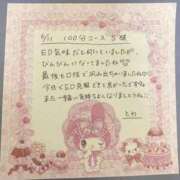 9/11 100分コース S様
ED気味だと伺っていましたが、
びんびんになってましたね
最後もお口で沢山出ちゃいましたね
今度もED克服できて良かったですね
また一緒に気持ちよくなりましょうね
とわ